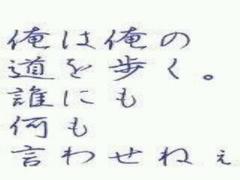 俺は俺の
道を歩く。
誰にも
何も
言わせねぇ